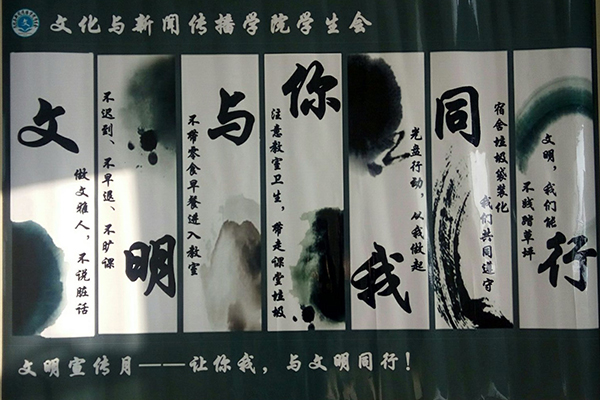 文化与新闻传播学院学生会
文
做文雅人，不说脏话
不迟到、不早退、不旷课
明
与
不带零食早餐进入教室
你
注意教室卫生，带走课堂垃圾
光盘行动，从我做起
我
同
宿舍垃圾袋装化
我们共同遵守
文明，我们能
不践踏草坪
行
文明宣传月——让你我，与文明同行！